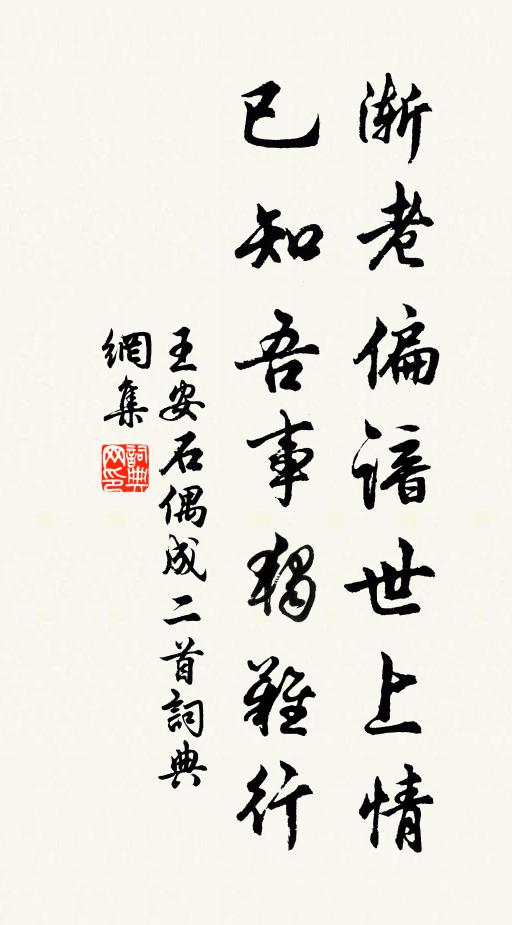 漸老偏諳世上情
已知吾事獨難行
王安石偶成二首詞典
網集
詞典
网印